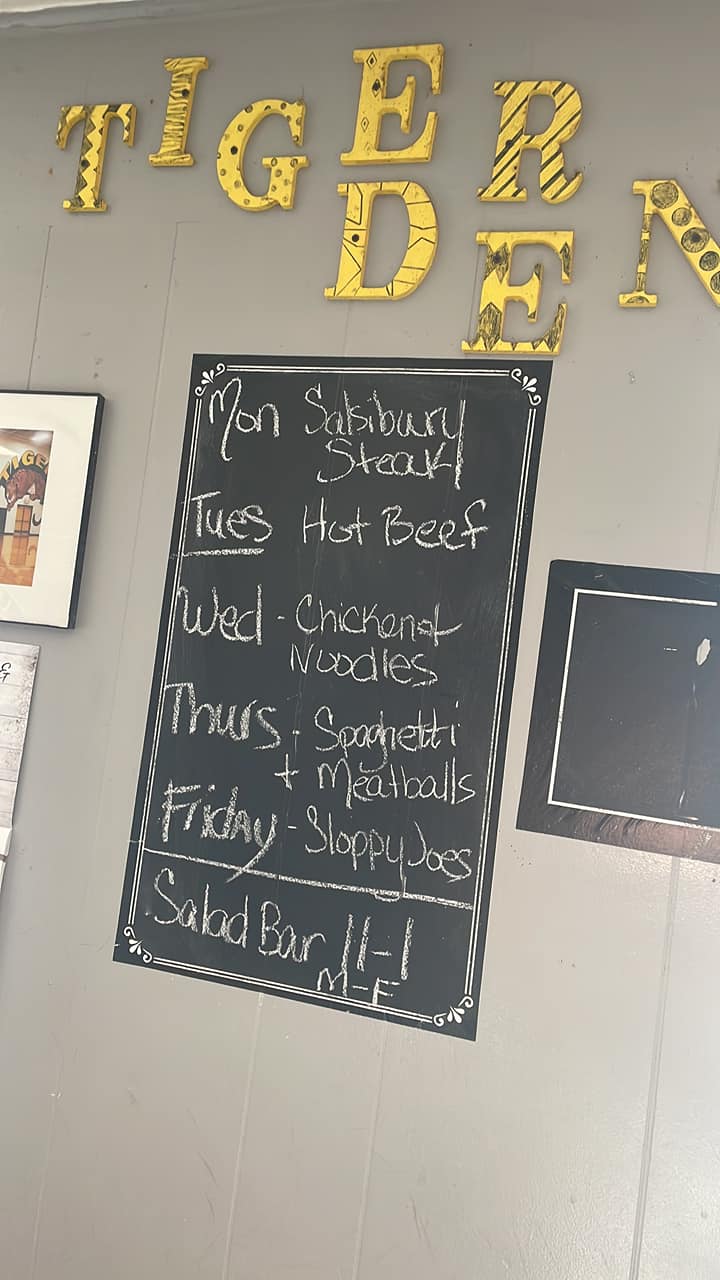 TIGER
DEN
TIGE
&
Mon Salsibury
Steak
Tues Hot Beef
Wed - Chicken +
Noodles
Thurs - Spaghetti
+ Meatballs
Friday - Sloppy Joes
Salad Bar 11-1
M-F